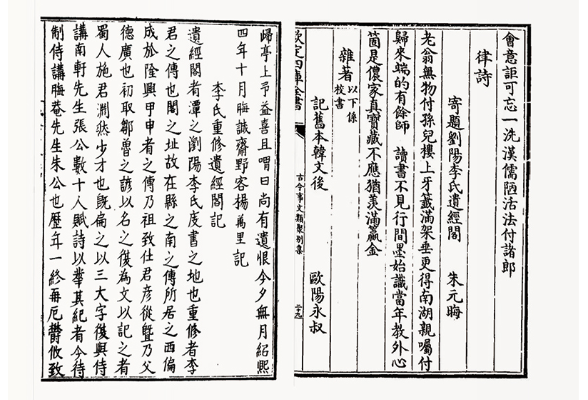 會意詎可忘一洗漢儒陋活法付諸郎
律詩
寄題劉陽李氏遺經閣　朱元晦
老翁無物付孫兒樓上牙籤滿架垂更得南湖親囑付
歸來端的有餘師　讀書不見行間墨始識當年教外心
箇是儂家真寳藏不應猶羨滿籯金
雜著以下係校書
記舊本韓文後　歐陽永叔
欽定四庫全書
古今事文類聚别集
歸亭上予益喜且謂曰尚有遺恨今夕無月紹熈
四年十月晦誠齋野客楊萬里記
李氏重修遺經閣記
遺經閣者潭之瀏陽李氏庋書之地也重修者李
君之傳也閣之址故在縣之南之傳所居之西偏
成於隆興甲申者之傳乃祖致仕君彦從曁乃父
德廣也初取鄒魯之諺以名之復為文以記之者
蜀人施君淵然少才也既扁之以三大字復與侍
講南軒先生張公數十人賦詩以華其紀者今待
制侍講晦菴先生朱公也歴年一終毎卮欝攸致